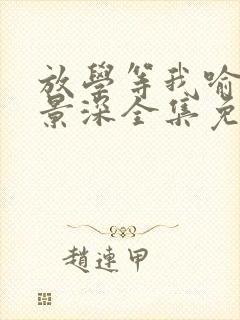 放學等我喻
景深全集免
趙連甲